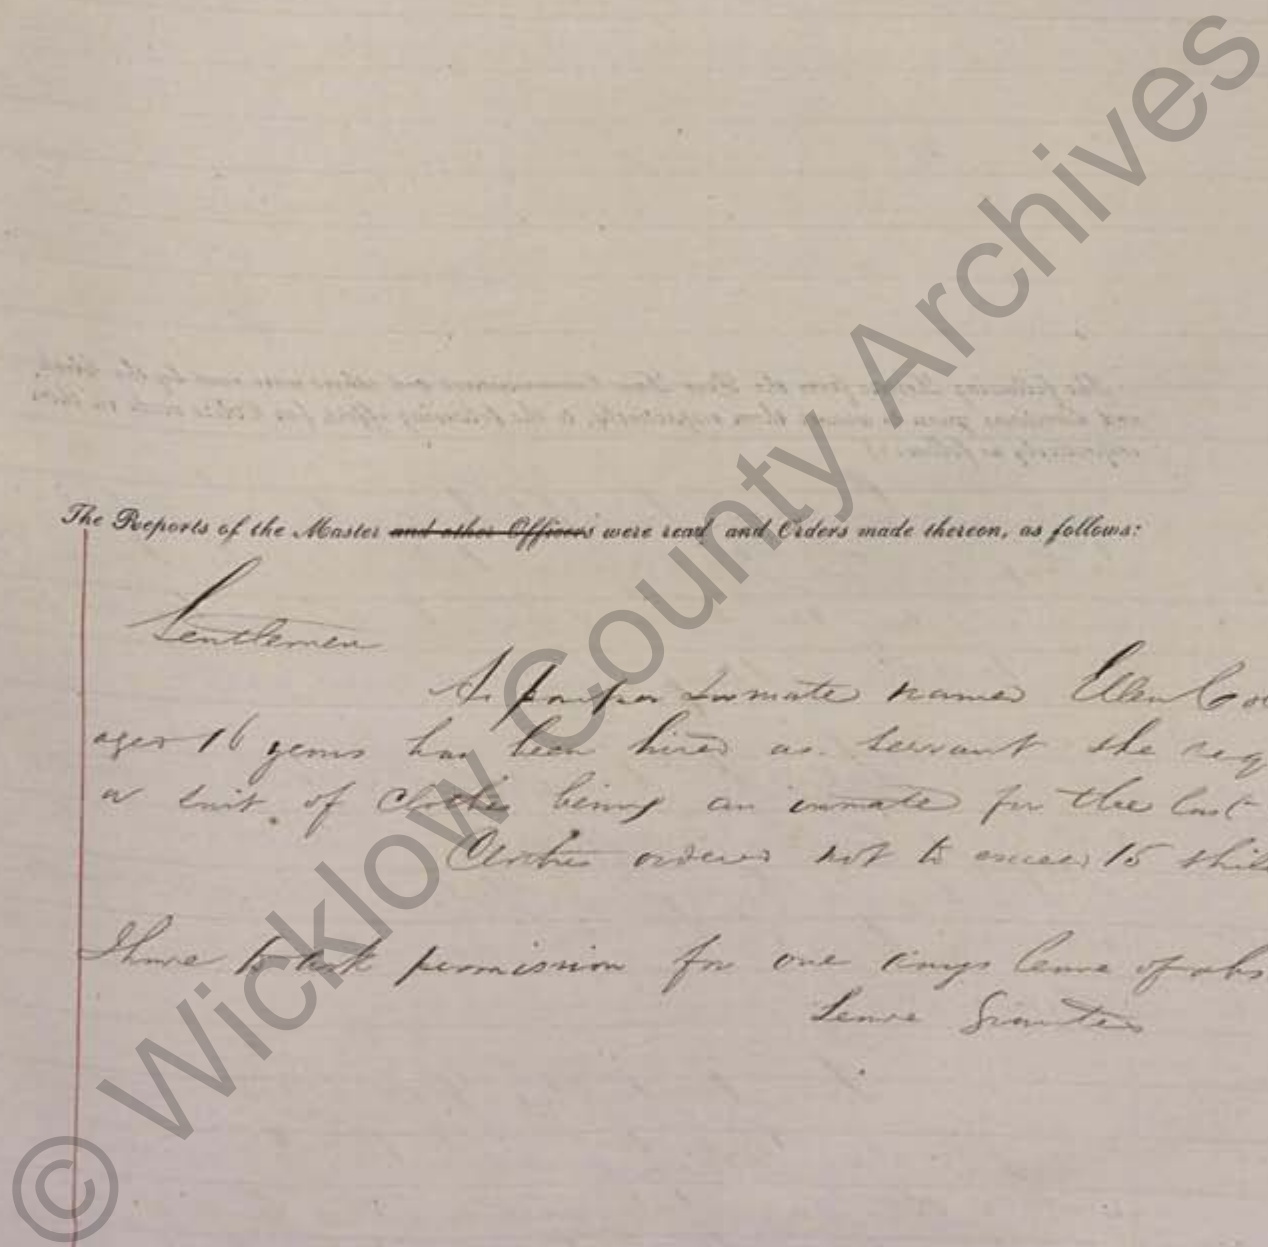 The Reports of the Master and other Officers were read and Orders made thereon, as follows:
Gentlemen
A pauper Inmate named Ellen Co
aged 16 years has been hired as servant she req
a suit of clothes being an inmate for the last
Clothes ordered not to exceed 15 shil
I have to ask permission for one days leave of abs
Leave Granted
© Wicklow County Archives